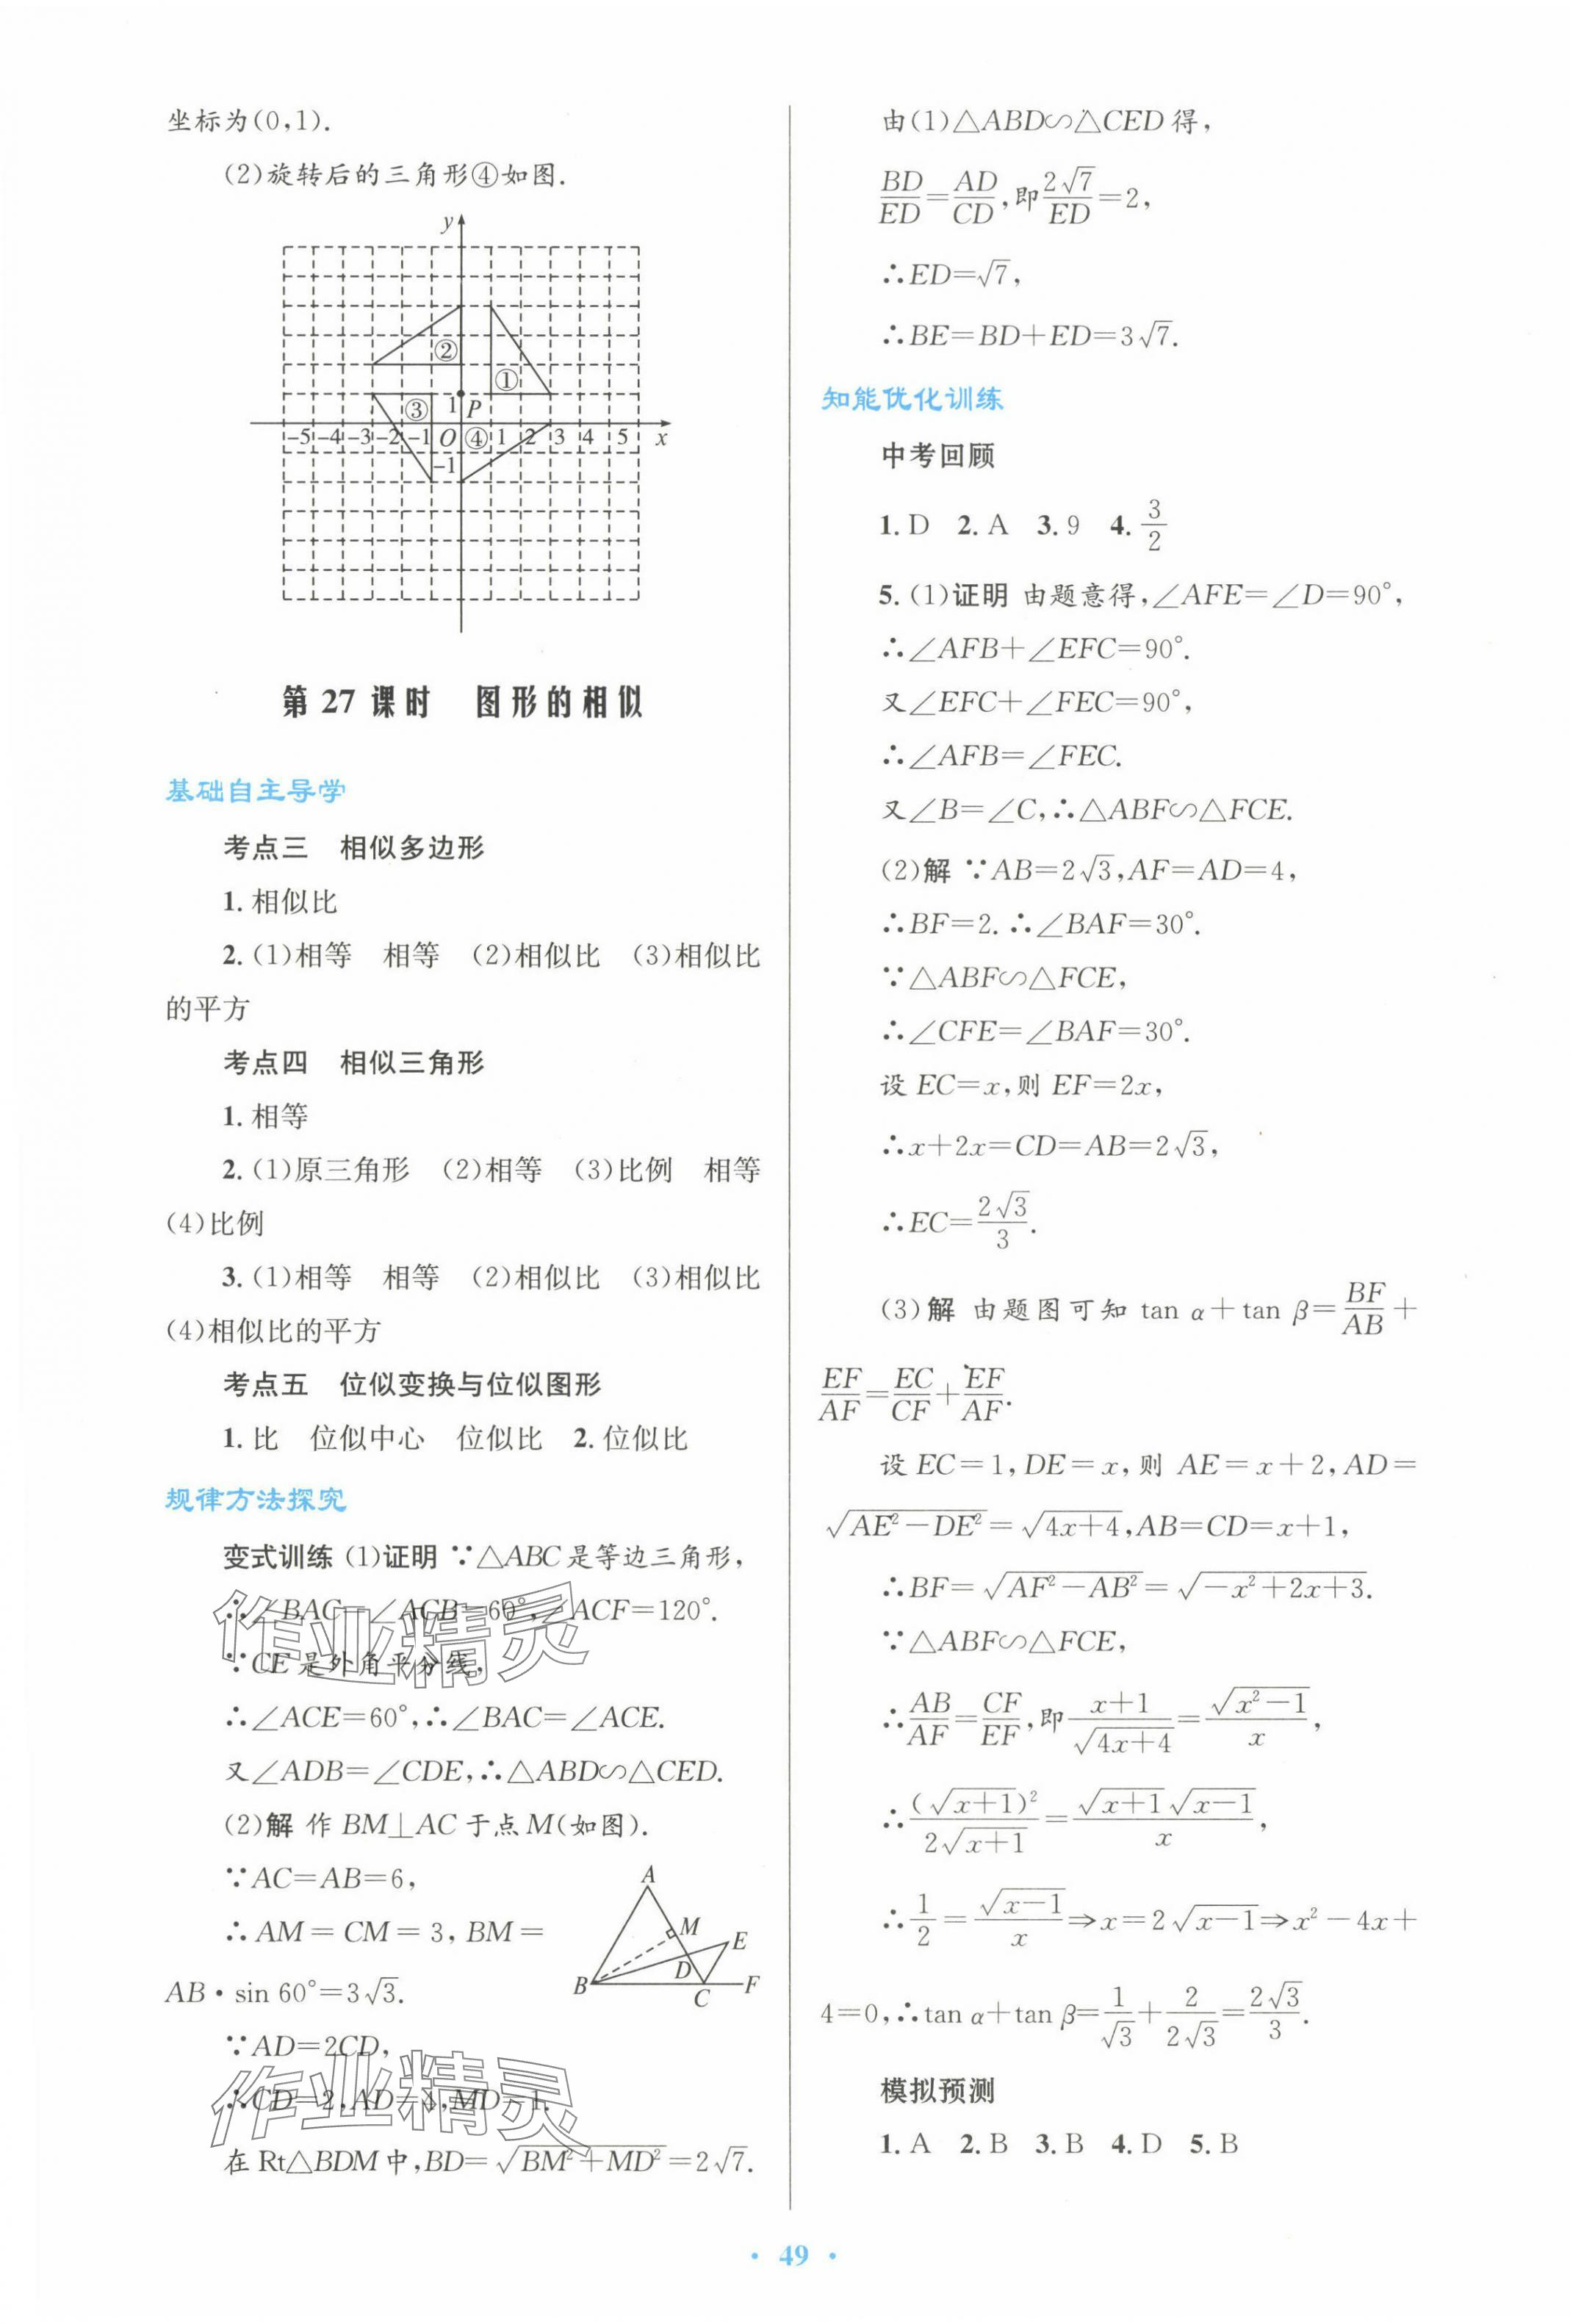 坐标为(0,1).
(2)旋转后的三角形④如图.
y
②
①
③ 1 P
-5 -4 -3 -2 -1 O ④ 1 2 3 4 5 x
-1
第 27 课时 图形的相似
基础自主导学
考点三 相似多边形
1. 相似比
2. (1)相等 相等 (2)相似比 (3)相似比
的平方
考点四 相似三角形
1. 相等
2. (1)原三角形 (2)相等 (3)比例 相等
(4)比例
3. (1)相等 相等 (2)相似比 (3)相似比
(4)相似比的平方
考点五 位似变换与位似图形
1. 比 位似中心 位似比 2. 位似比
规律方法探究
变式训练 (1)证明 ∵△ABC是等边三角形,
∴∠BAC=∠ACB=60°,∠ACF=120°.
∵CE是外角平分线,
∴∠ACE=60°,∴∠BAC=∠ACE.
又∠ADB=∠CDE,∴△ABD∽△CED.
(2)解 作 BM⊥AC 于点 M(如图).
∵AC=AB=6,
∴AM=CM=3, BM=
AB·sin 60°=3√3.
A
M
E
D
B
C
F
∵AD=2CD,
∴CD=2,AD=4,MD=1.
在 Rt△BDM 中,BD=√(BM²+MD²)=2√7.
作业精灵
作业精灵
由(1)△ABD∽△CED 得,
BD/ED=AD/CD,即 2√7/ED=2,
∴ED=√7,
∴BE=BD+ED=3√7.
知能优化训练
中考回顾
1. D 2. A 3. 9 4. 3/2
5. (1)证明 由题意得,∠AFE=∠D=90°,
∴∠AFB+∠EFC=90°.
又∠EFC+∠FEC=90°,
∴∠AFB=∠FEC.
又∠B=∠C,∴△ABF∽△FCE.
(2)解 ∵AB=2√3,AF=AD=4,
∴BF=2.∴∠BAF=30°.
∵△ABF∽△FCE,
∴∠CFE=∠BAF=30°.
设 EC=x,则 EF=2x,
∴x+2x=CD=AB=2√3,
∴EC=2√3/3.
(3)解 由题图可知 tan α+tan β=BF/AB+
EF/AF=EC/CF+EF/AF.
设 EC=1,DE=x,则 AE=x+2,AD=
√(AE²-DE²)=√(4x+4),AB=CD=x+1,
∴BF=√(AF²-AB²)=√(-x²+2x+3).
∵△ABF∽△FCE,
∴AB/AF=CF/EF,即 (x+1)/√(4x+4)=√(x²-1)/x,
∴(√(x+1))²/(2√(x+1))=√(x+1)√(x-1)/x,
∴1/2=√(x-1)/x⇒x=2√(x-1)⇒x²-4x+
4=0,∴tan α+tan β=1/√3+2/(2√3)=2√3/3.
模拟预测
1. A 2. B 3. B 4. D 5. B
· 49 ·